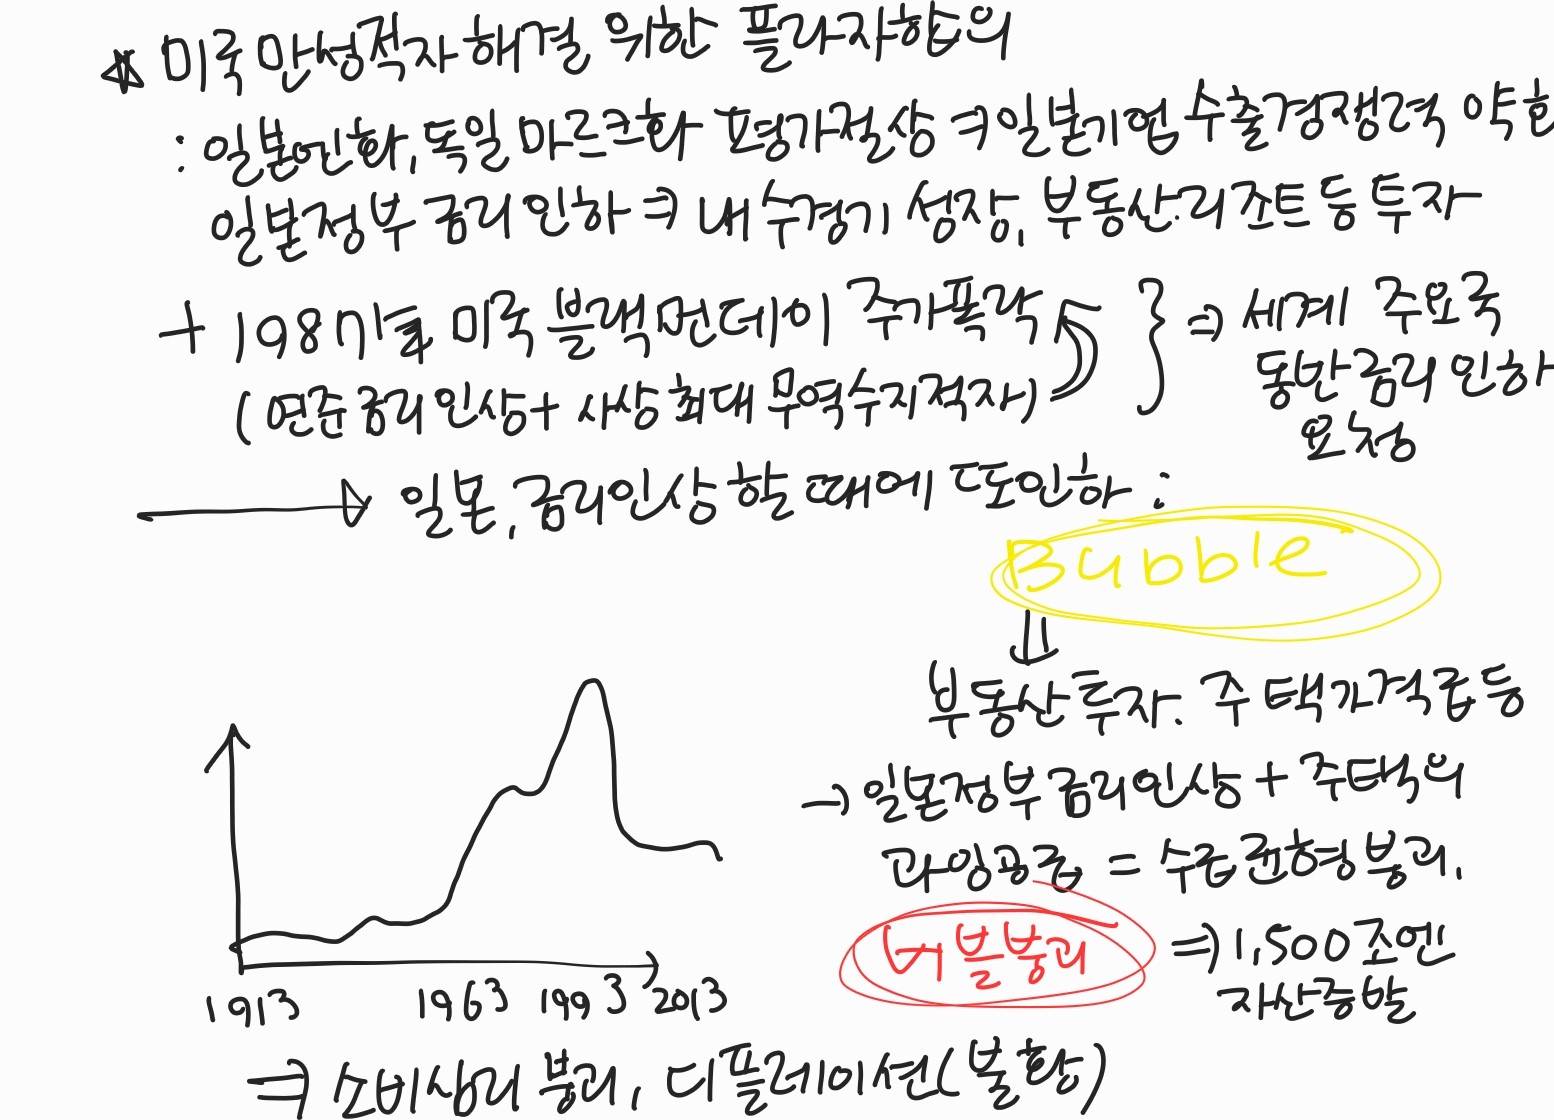 * 미국 만성적자 해결 위한 플라자합의
: 일본엔화, 독일 마르크화 평가절상 ⇒ 일본기업 수출경쟁력 약화
일본정부 금리인하 ⇒ 내수경기 성장, 부동산.리조트 등 투자
+ 1987년 미국 블랙먼데이 주가폭락
(연준 금리인상 + 사상최대 무역수지적자)
⇒ 세계 주요국
동반금리인하
요청
→ 일본, 금리인상할 때에 또 인하 :
Bubble
부동산투자. 주택가격급등
→ 일본정부 금리인상 + 주택의
과잉공급 = 수급균형 붕괴.
버블붕괴 ⇒ 1,500조엔
자산증발
1913 1963 1993 2013
⇒ 소비심리 붕괴, 디플레이션(불황)